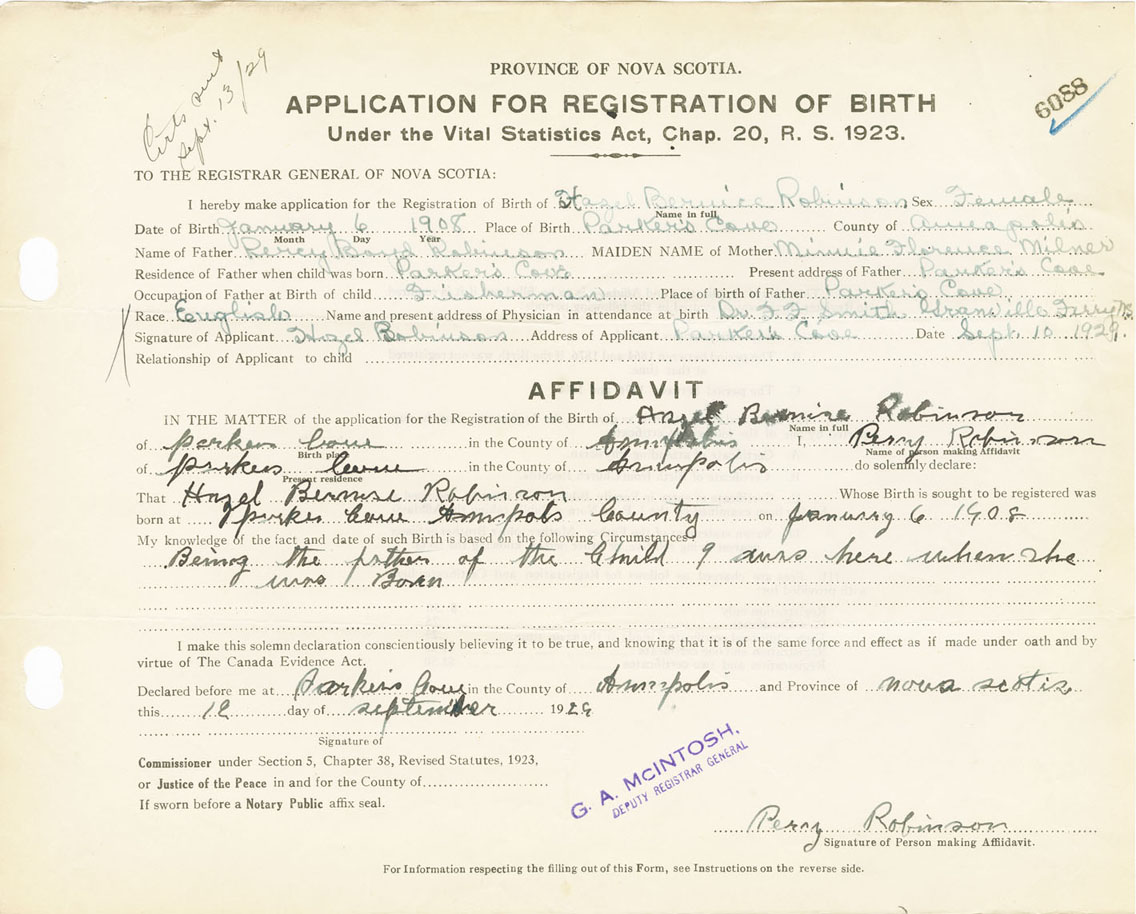 Certs sent
Sept. 13/29
6088
PROVINCE OF NOVA SCOTIA.
APPLICATION FOR REGISTRATION OF BIRTH
Under the Vital Statistics Act, Chap. 20, R. S. 1923.
TO THE REGISTRAR GENERAL OF NOVA SCOTIA:
I hereby make application for the Registration of Birth of Hazel Bernice Robinson Sex Female
Name in full
Date of Birth January 6 1908 Place of Birth Parker's Cove County of Annapolis
Month Day Year
Name of Father Percy Boyd Robinson MAIDEN NAME of Mother Minnie Florence Milner
Residence of Father when child was born Parker's Cove Present address of Father Parker's Cove
Occupation of Father at Birth of child Fisherman Place of birth of Father Parker's Cove
Race English Name and present address of Physician in attendance at birth Dr. F. F. Smith Granville Ferry N.S.
Signature of Applicant Hazel Robinson Address of Applicant Parker's Cove Date Sept. 10 1929.
Relationship of Applicant to child
AFFIDAVIT
IN THE MATTER of the application for the Registration of the Birth of Hazel Bernise Robinson
Name in full
of parkers Cove in the County of Annapolis I Percy Robinson
Birth place Name of person making Affidavit
of parkers Cove in the County of Annapolis do solemnly declare:
Present residence
That Hazel Bernise Robinson Whose Birth is sought to be registered was
born at parkes Cove Annpols County on January 6 1908
My knowledge of the fact and date of such Birth is based on the following Circumstances:
Being the father of the Child I was here when she
was Born
I make this solemn declaration conscientiously believing it to be true, and knowing that it is of the same force and effect as if made under oath and by
virtue of The Canada Evidence Act.
Declared before me at Parkers Cove in the County of Annpolis and Province of nova scotia
this 12 day of september 1929
Signature of
Commissioner under Section 5, Chapter 38, Revised Statutes, 1923,
or Justice of the Peace in and for the County of
If sworn before a Notary Public affix seal.
G. A. McINTOSH,
DEPUTY REGISTRAR GENERAL
Percy Robinson
Signature of Person making Affidavit.
For Information respecting the filling out of this Form, see Instructions on the reverse side.